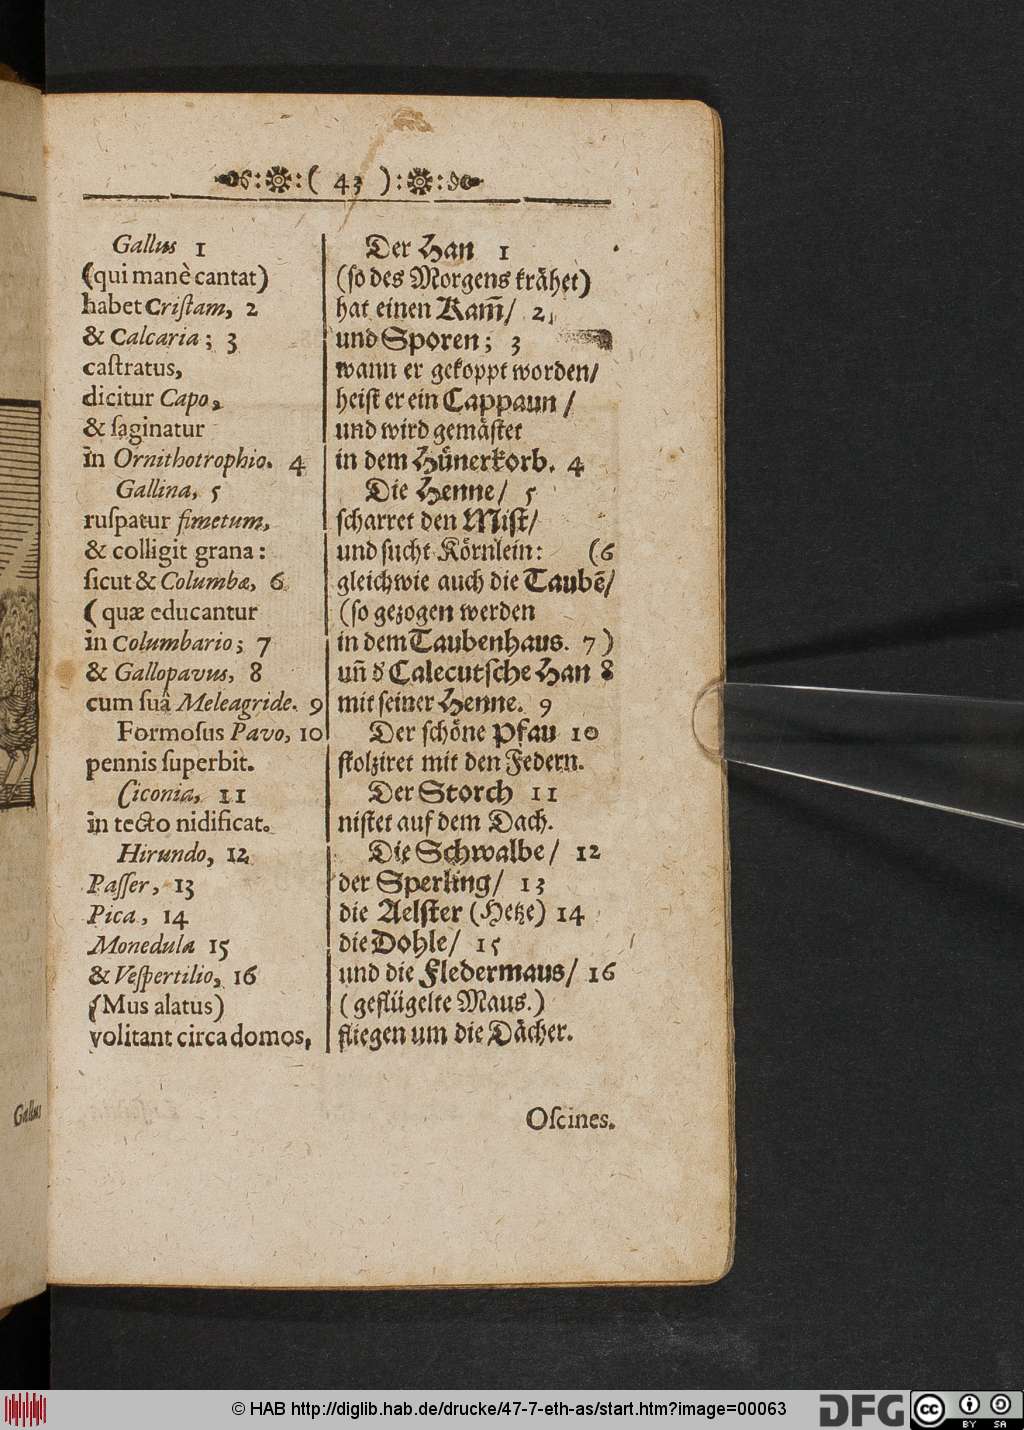 ( 43 )
Gallus 1
(qui manè cantat)
habet Criſtam, 2
& Calcaria; 3
caſtratus,
dicitur Capo,
& ſaginatur
in Ornithotrophio. 4
Gallina, 5
ruſpatur fimetum,
& colligit grana:
ſicut & Columbæ, 6
(quæ educantur
in Columbario; 7
& Gallopavus, 8
cum ſuâ Meleagride. 9
Formoſus Pavo, 10
pennis ſuperbit.
Ciconia, 11
in tecto nidificat.
Hirundo, 12
Paſſer, 13
Pica, 14
Monedula 15
& Veſpertilio, 16
(Mus alatus)
volitant circa domos,
Der Han 1
(ſo des Morgens krähet)
hat einen Kam̃/ 2,
und Sporen; 3
wann er gekoppt worden/
heiſt er ein Cappaun /
und wird gemäſtet
in dem Hünerkorb. 4
Die Henne/ 5
ſcharret den Miſt/
und ſucht Körnlein: (6
gleichwie auch die Taubẽ/
(ſo gezogen werden
in dem Taubenhaus. 7)
uñ d' Calecutſche Han 8
mit ſeiner Henne. 9
Der ſchöne Pfau 10
ſtolziret mit den Federn.
Der Storch 11
niſtet auf dem Dach.
Die Schwalbe/ 12
der Sperling/ 13
die Aelſter (Hetze) 14
die Dohle/ 15
und die Fledermaus/ 16
(geflügelte Maus.)
fliegen um die Dächer.
Oſcines.
Gallus
© HAB http://diglib.hab.de/drucke/47-7-eth-as/start.htm?image=00063
DFG
cc BY SA